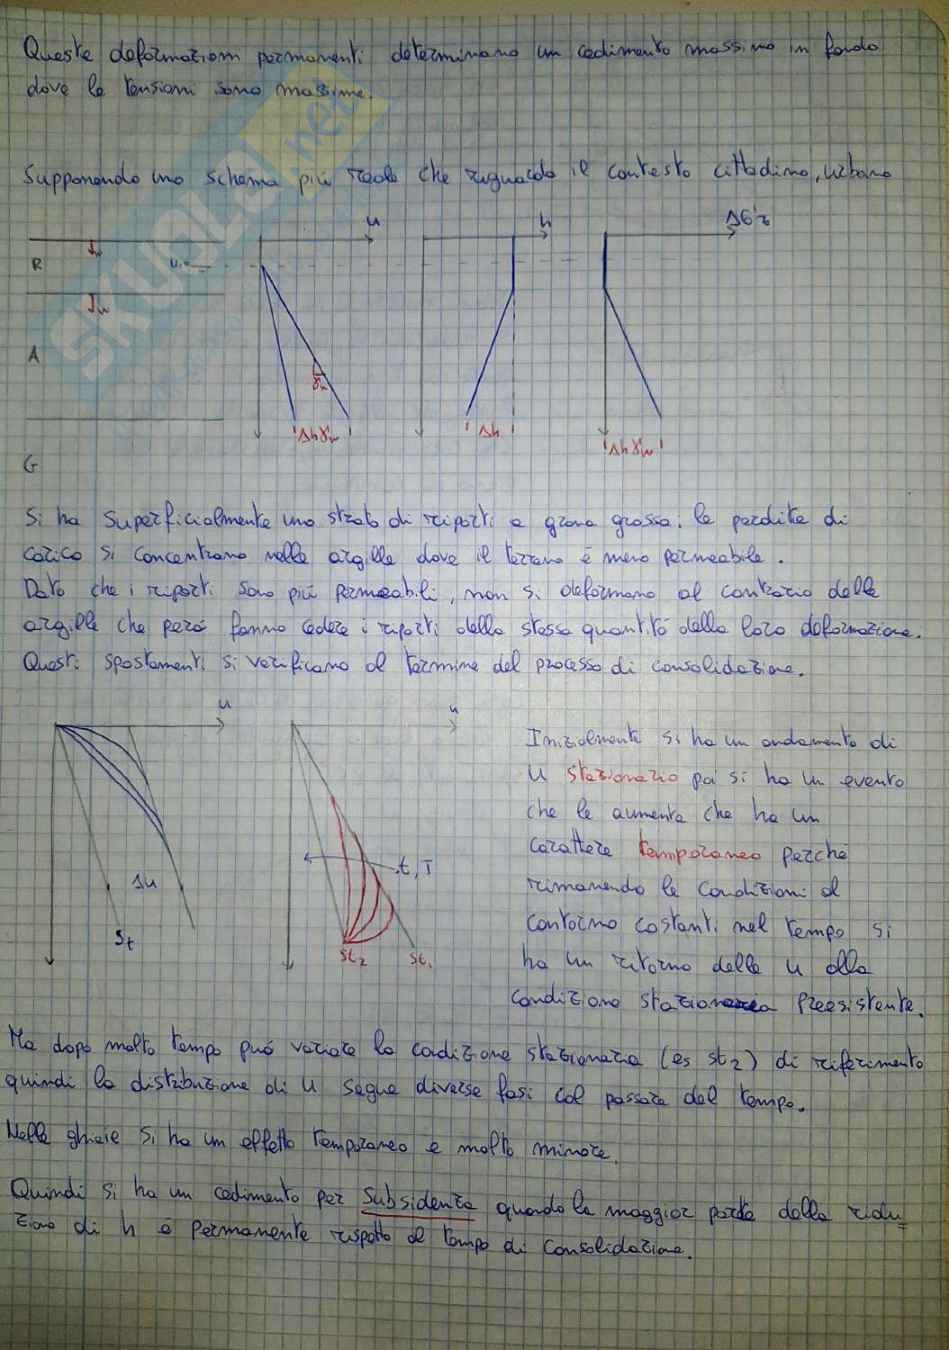 Queste deformazioni permanenti determinano un cedimento massimo in fondo
dove le tensioni sono massime.
Supponendo uno schema più reale che riguarda il contesto cittadino, urbano
u h Δσ'z
R
A
γw
Δhγw Δh Δhγw
G
Si ha superficialmente uno strato di riporti a grana grossa: le perdite di
carico si concentrano nelle argille dove il terreno è meno permeabile.
Dato che i riporti sono più permeabili, non si deformano al contrario delle
argille che però fanno cedere i riporti della stessa quantità della loro deformazione.
Questi spostamenti si verificano al termine del processo di consolidazione.
u u
Δu
St
t, T
St2 St1
Inizialmente si ha un andamento di
u stazionario poi si ha un evento
che le aumenta che ha un
carattere temporaneo perché
rimanendo le condizioni al
contorno costanti nel tempo si
ha un ritorno delle u alla
condizione stazionaria preesistente.
Ma dopo molto tempo può variare la condizione stazionaria (es st2) di riferimento
quindi la distribuzione di u segue diverse fasi col passare del tempo.
Nelle ghiaie si ha un effetto temporaneo e molto minore.
Quindi si ha un cedimento per subsidenza quando la maggior parte della ridu=
zione di h è permanente rispetto al tempo di consolidazione.
SKUOLA.net